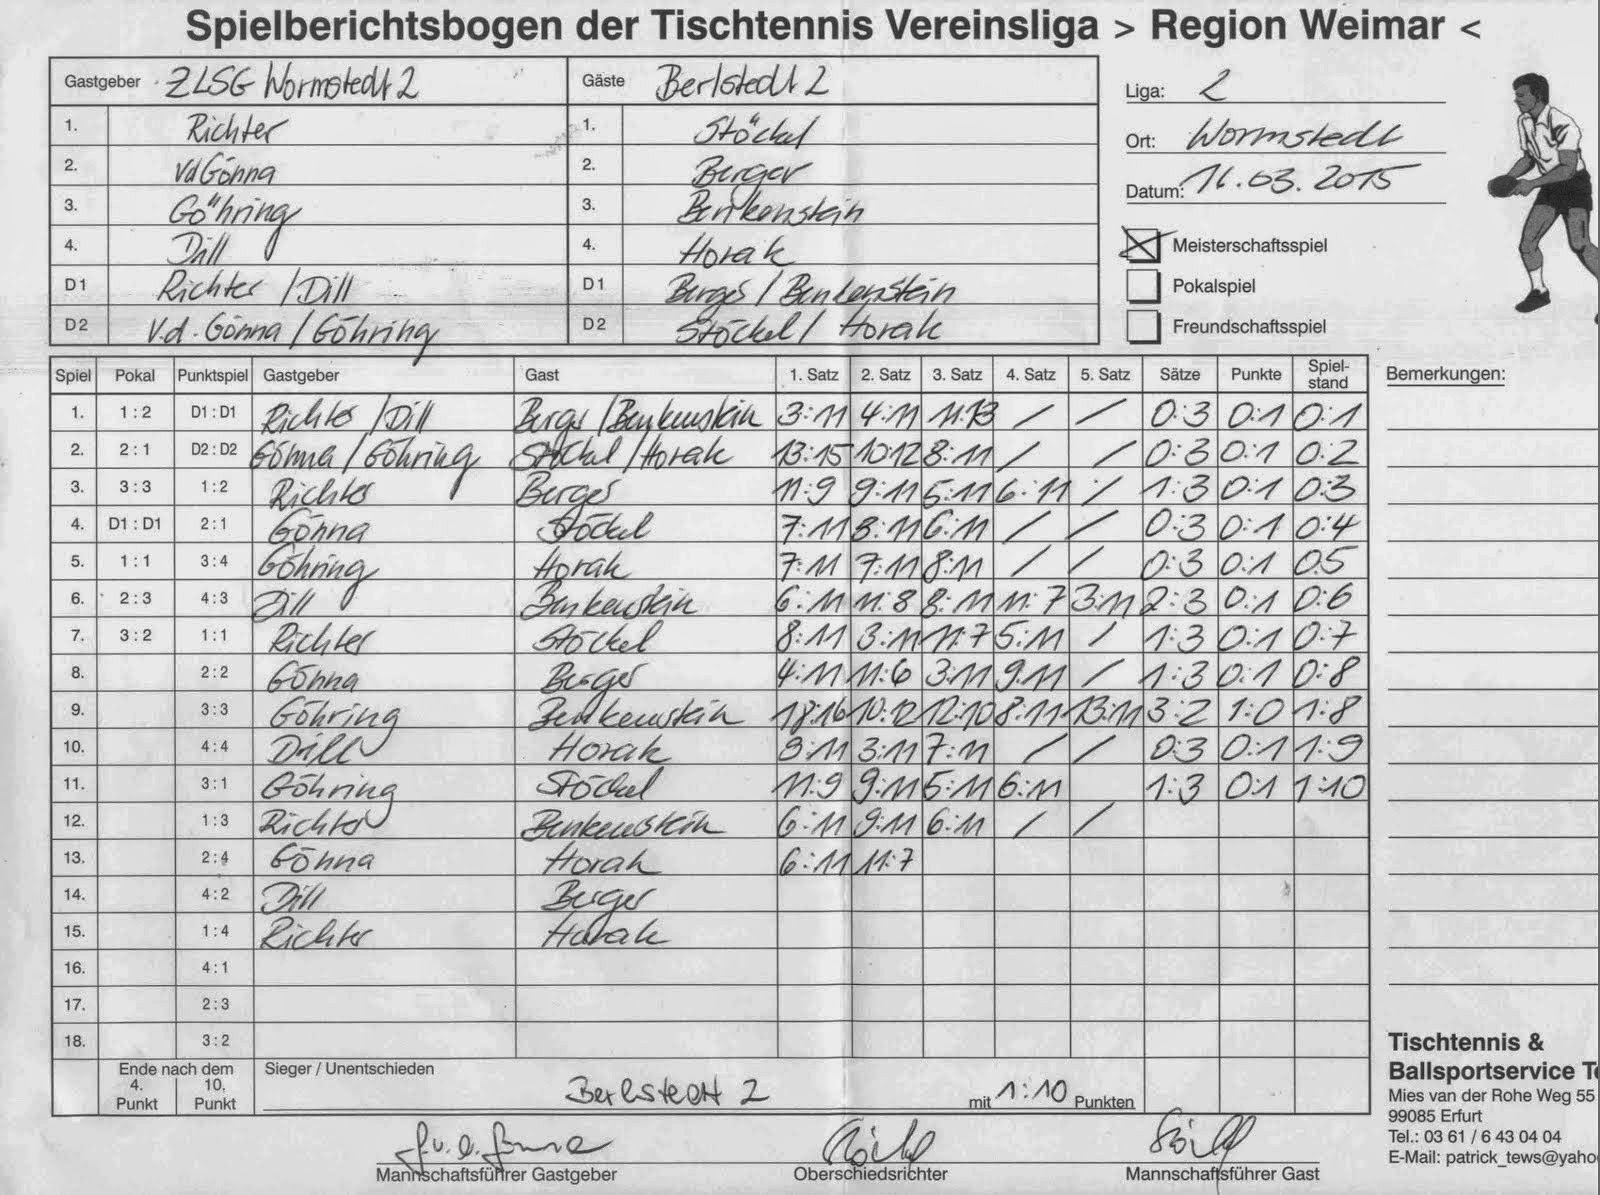 Spielberichtsbogen der Tischtennis Vereinsliga > Region Weimar <
Gastgeber ZLSG Wormstedt 2 Gäste Berlstedt 2
1. Richter 1. Stöckel
2. vd Gönna 2. Berger
3. Göhring 3. Benkenstein
4. Dill 4. Horak
D1 Richter / Dill D1 Berger / Benkenstein
D2 v.d. Gönna / Göhring D2 Stöckel / Horak
Liga: 2
Ort: Wormstedt
Datum: 16.03.2015
Meisterschaftsspiel
Pokalspiel
Freundschaftsspiel
Spiel Pokal Punktspiel Gastgeber Gast 1. Satz 2. Satz 3. Satz 4. Satz 5. Satz Sätze Punkte Spiel-stand
Bemerkungen:
1. 1:2 D1:D1 Richter / Dill Berger / Benkenstein 3:11 4:11 11:13 / / 0:3 0:1 0:1
2. 2:1 D2:D2 Gönna / Göhring Stöckel / Horak 13:15 10:12 8:11 / / 0:3 0:1 0:2
3. 3:3 1:2 Richter Berger 11:9 9:11 5:11 6:11 / 1:3 0:1 0:3
4. D1:D1 2:1 Gönna Stöckel 7:11 8:11 6:11 / / 0:3 0:1 0:4
5. 1:1 3:4 Göhring Horak 7:11 7:11 8:11 / / 0:3 0:1 0:5
6. 2:3 4:3 Dill Benkenstein 6:11 11:8 8:11 11:7 3:11 2:3 0:1 0:6
7. 3:2 1:1 Richter Stöckel 8:11 3:11 11:7 5:11 / 1:3 0:1 0:7
8. 2:2 Gönna Berger 4:11 11:6 3:11 9:11 / 1:3 0:1 0:8
9. 3:3 Göhring Benkenstein 18:16 10:12 12:10 8:11 13:11 3:2 1:0 1:8
10. 4:4 Dill Horak 8:11 3:11 7:11 / / 0:3 0:1 1:9
11. 3:1 Göhring Stöckel 11:9 9:11 5:11 6:11 1:3 0:1 1:10
12. 1:3 Richter Benkenstein 6:11 9:11 6:11 / /
13. 2:4 Gönna Horak 6:11 11:7
14. 4:2 Dill Berger
15. 1:4 Richter Horak
16. 4:1
17. 2:3
18. 3:2
Ende nach dem
4. Punkt 10. Punkt
Sieger / Unentschieden
Berlstedt 2 mit 1:10 Punkten
Mannschaftsführer Gastgeber
Stöckel
Oberschiedsrichter
Stöckel
Mannschaftsführer Gast
Tischtennis &
Ballsportservice Te
Mies van der Rohe Weg 55
99085 Erfurt
Tel.: 03 61 / 6 43 04 04
E-Mail: patrick_tews@yaho